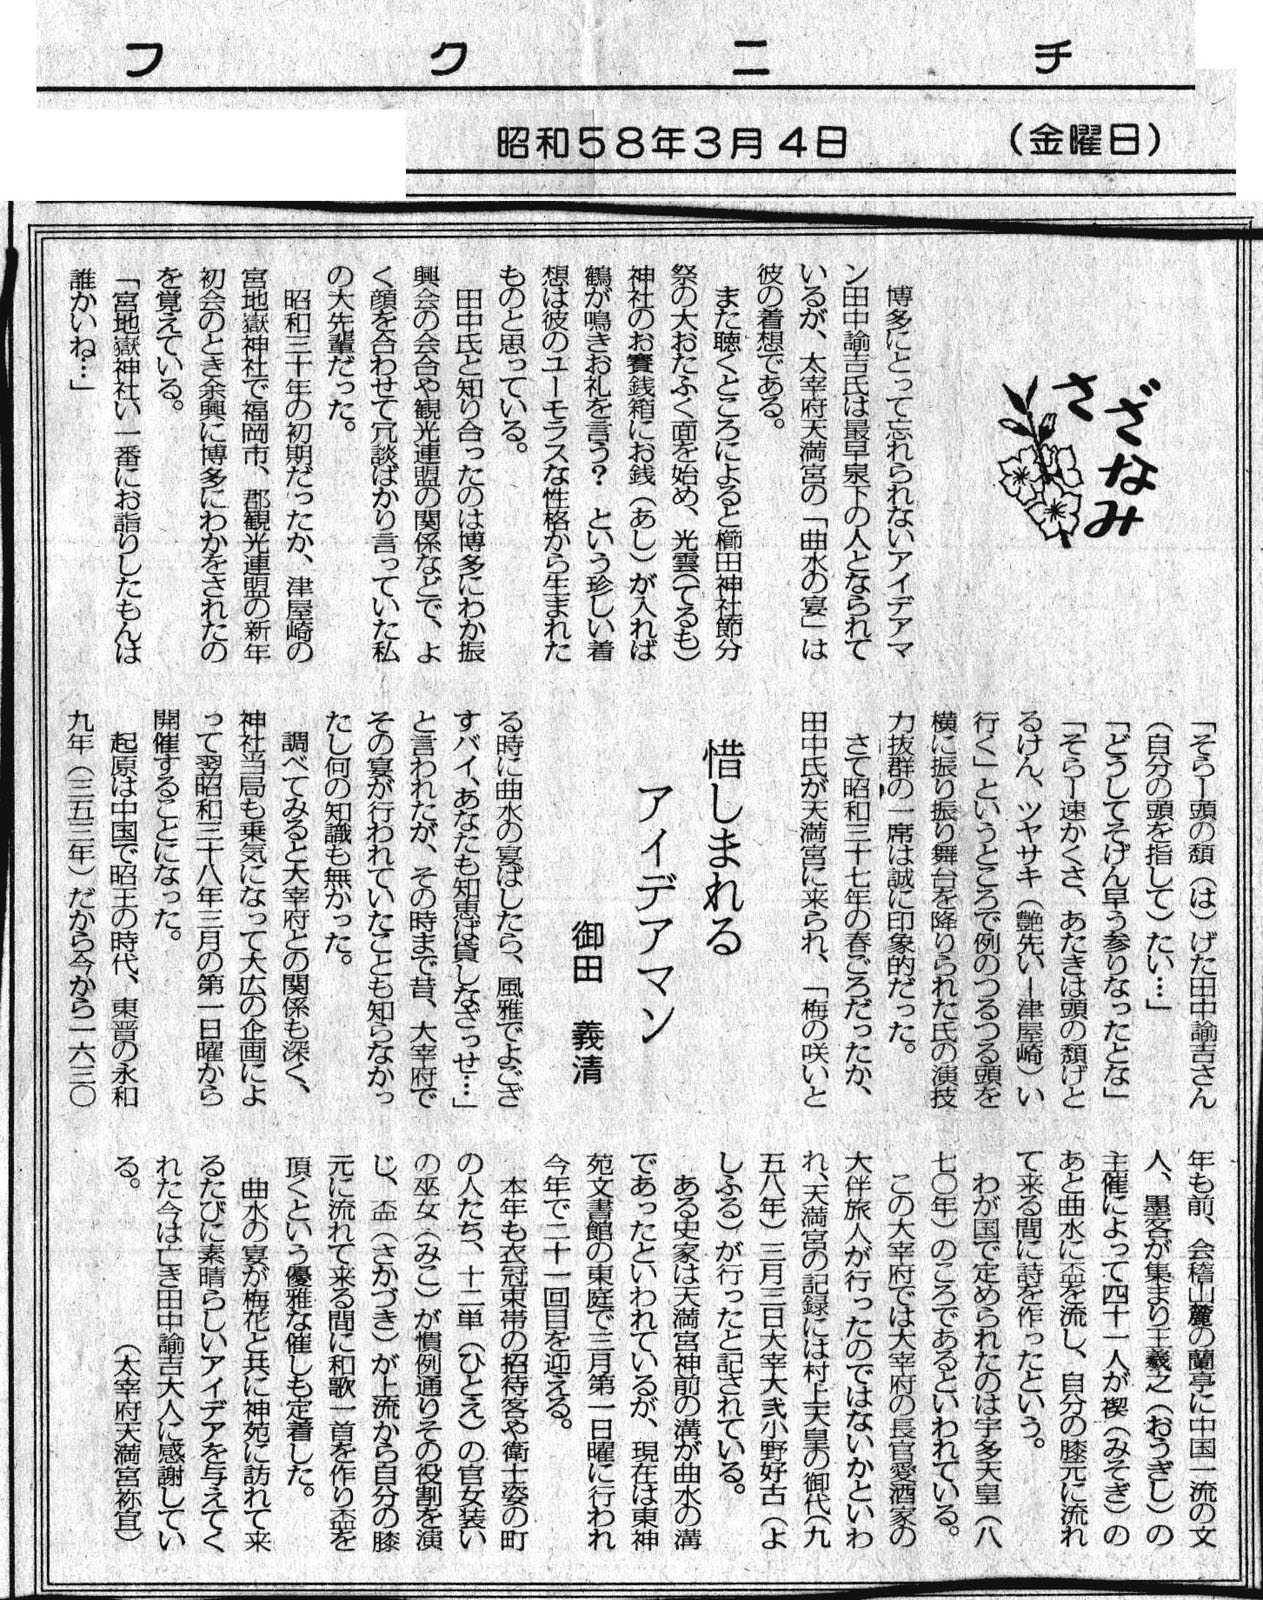 フクニチ
昭和58年3月4日
（金曜日）
さざなみ
博多にとって忘れられないアイデアマ
ン田中諭吉氏は最早泉下の人となられて
いるが、太宰府天満宮の「曲水の宴」は
彼の着想である。
また聴くところによると櫛田神社節分
祭の大おたふく面を始め、光雲（てるも）
神社のお賽銭箱にお銭（あし）が入れば
鶴が鳴きお礼を言う？　という珍しい着
想は彼のユーモラスな性格から生まれた
ものと思っている。
田中氏と知り合ったのは博多にわか振
興会の会合や観光連盟の関係などで、よ
く顔を合わせて冗談ばかり言っていた私
の大先輩だった。
昭和三十年の初期だったか、津屋崎の
宮地嶽神社で福岡市、郡観光連盟の新年
初会のとき余興に博多にわかをされたの
を覚えている。
「宮地嶽神社い一番にお詣りしたもんは
誰かいね…」
「そらー頭の頽（は）げた田中諭吉さん
（自分の頭を指して）たい…」
「どうしてそげん早う参りなったとな」
「そらー速かくさ、あたきは頭の頽げと
るけん、ツヤサキ（艶先いー津屋崎）い
行く」というところで例のつるつる頭を
横に振り振り舞台を降りられた氏の演技
力抜群の一席は誠に印象的だった。
さて昭和三十七年の春ごろだったか、
田中氏が天満宮に来られ、「梅の咲いと
惜しまれる
アイデアマン
御田　義清
る時に曲水の宴ばしたら、風雅でよござ
すバイ、あなたも知恵ば貸しなざっせ…」
と言われたが、その時まで昔、大宰府で
その宴が行われていたことも知らなかっ
たし何の知識も無かった。
調べてみると大宰府との関係も深く、
神社当局も乗気になって大広の企画によ
って翌昭和三十八年三月の第一日曜から
開催することになった。
起原は中国で昭王の時代、東晋の永和
九年（三五三年）だから今から一六三〇
年も前、会稽山麓の蘭亭に中国一流の文
人、墨客が集まり王羲之（おうぎし）の
主催によって四十一人が禊（みそぎ）の
あと曲水に盃を流し、自分の膝元に流れ
て来る間に詩を作ったという。
わが国で定められたのは宇多天皇（八
七〇年）のころであるといわれている。
この大宰府では大宰府の長官愛酒家の
大伴旅人が行ったのではないかといわ
れ、天満宮の記録には村上天皇の御代（九
五八年）三月三日大宰大弐小野好古（よ
しふる）が行ったと記されている。
ある史家は天満宮神前の溝が曲水の溝
であったといわれているが、現在は東神
苑文書館の東庭で三月第一日曜に行われ
今年で二十一回目を迎える。
本年も衣冠束帯の招待客や衛士姿の町
の人たち、十二単（ひとえ）の官女装い
の巫女（みこ）が慣例通りその役割を演
じ、盃（さかづき）が上流から自分の膝
元に流れて来る間に和歌一首を作り盃を
頂くという優雅な催しも定着した。
曲水の宴が梅花と共に神苑に訪れて来
るたびに素晴らしいアイデアを与えてく
れた今は亡き田中諭吉大人に感謝してい
る。
（太宰府天満宮祢宜）